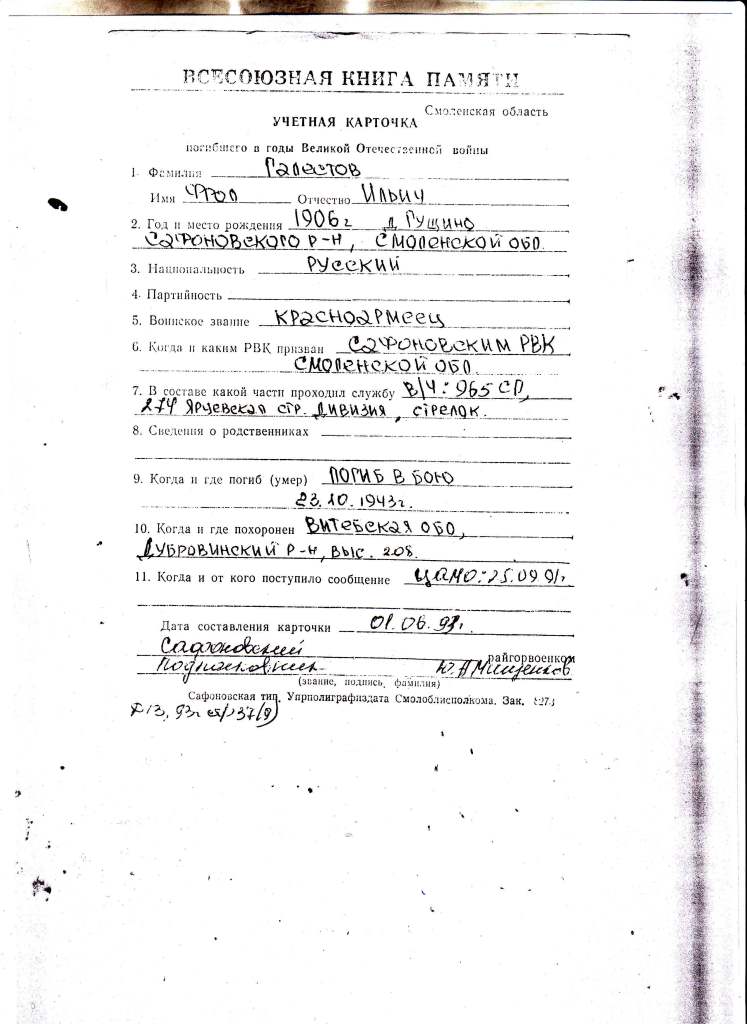 ВСЕСОЮЗНАЯ КНИГА ПАМЯТИ
Смоленская область
УЧЕТНАЯ КАРТОЧКА
погибшего в годы Великой Отечественной войны
1. Фамилия Галестов
Имя Фрол Отчество Ильич
2. Год и место рождения 1906г д. Гущино
Сафоновского р-н, Смоленской обл.
3. Национальность Русский
4. Партийность
5. Воинское звание Красноармеец
6. Когда и каким РВК призван Сафоновским РВК
Смоленской обл.
7. В составе какой части проходил службу в/ч: 965 СП,
274 Ярцевская стр. дивизия, стрелок.
8. Сведения о родственниках
9. Когда и где погиб (умер) погиб в бою
23.10.1943г.
10. Когда и где похоронен Витебская обл,
Дубровинский р-н, выс. 208.
11. Когда и от кого поступило сообщение ЦАМО: 25.09 91г
Дата составления карточки 01.06.93г.
Сафоновский райгорвоенком
Подполковник Ю.А Мищенков
(звание, подпись, фамилия)
Сафоновская тип. Упрполиграфиздата Смолоблисполкома. Зак.